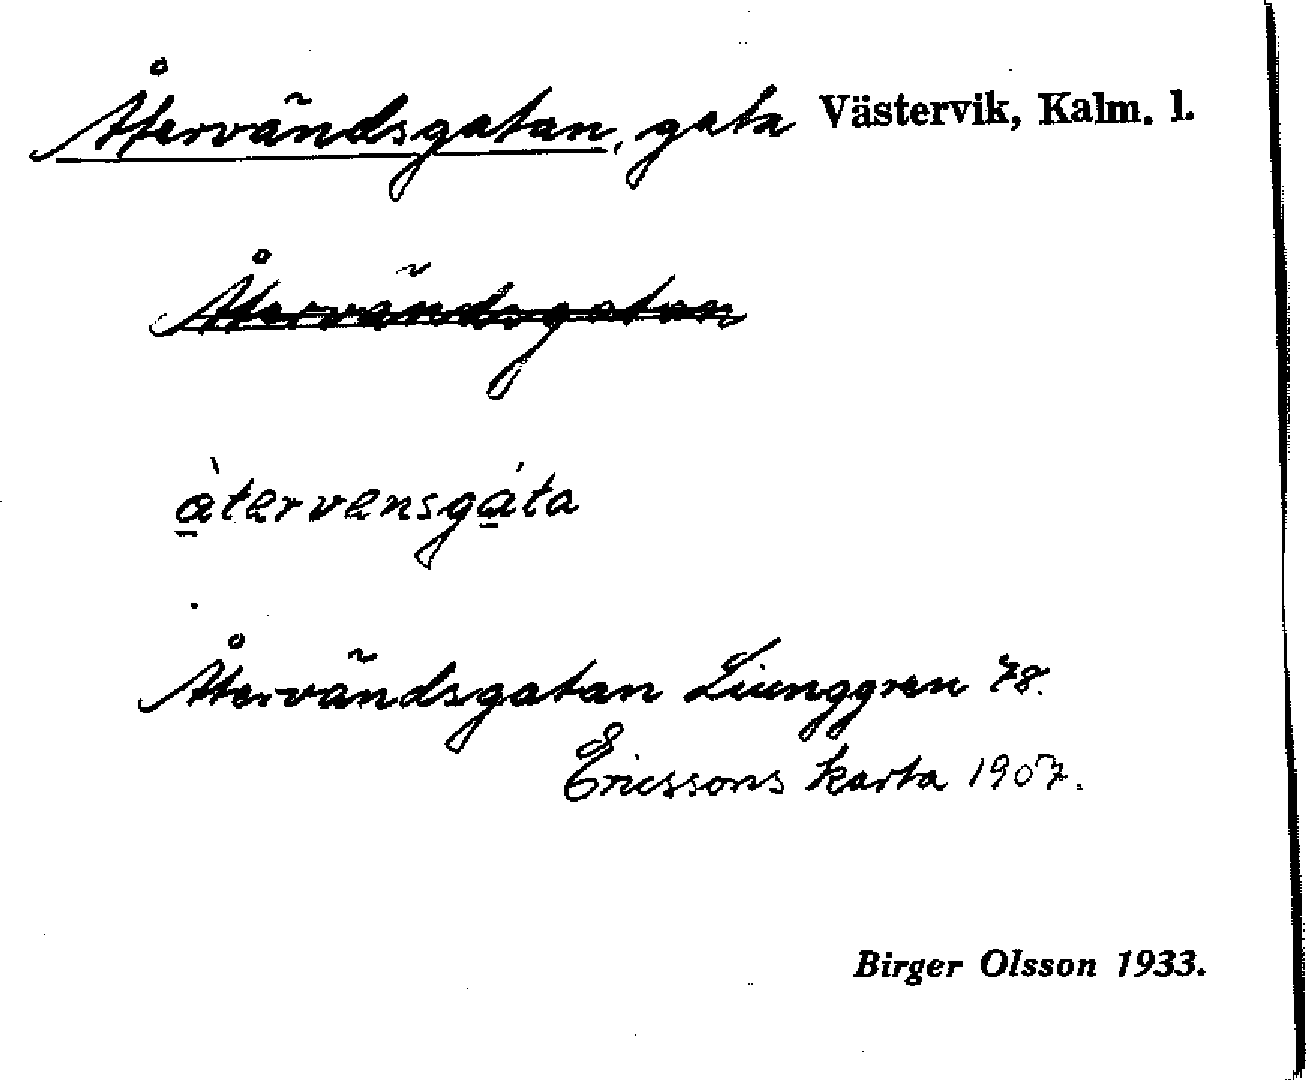 Återvändsgatan, gata Västervik, Kalm. l.
Återvändsgatan
à̲tervensgá̲ta
Återvändsgatan Liunggren 78.
Ericssons karta 1907.
Birger Olsson 1933.